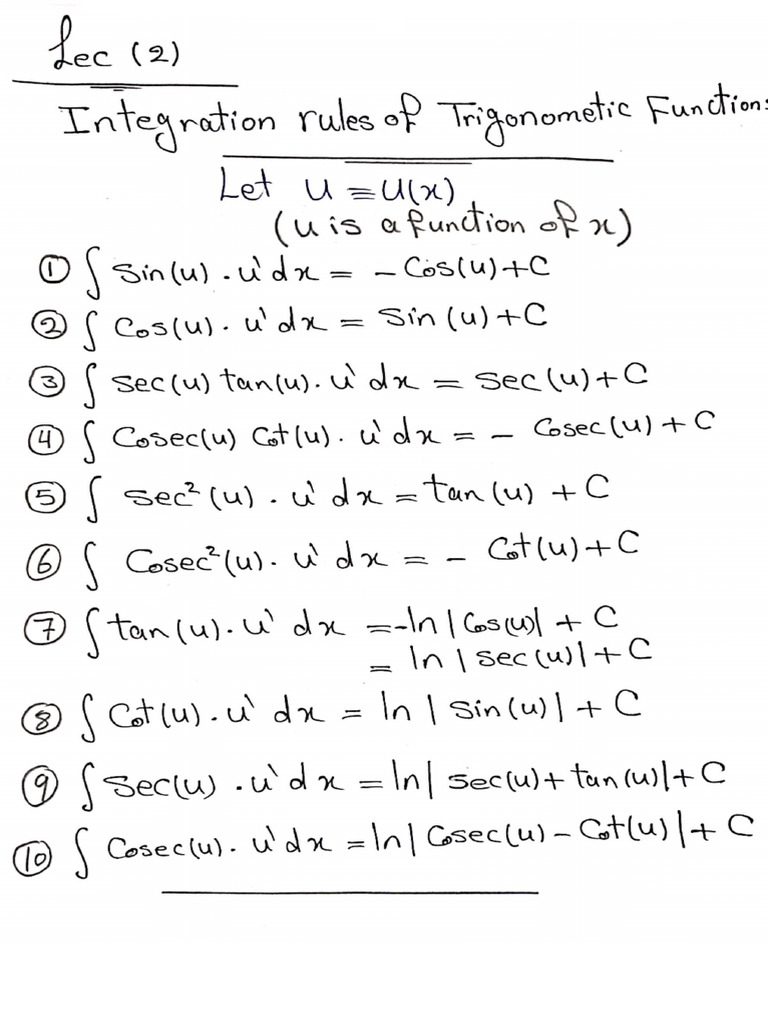 Lec (2)
Integration rules of Trigonometic Functions
Let u = u(x)
(u is a function of x)
① ∫ Sin(u) . u' dx = - Cos(u)+C
② ∫ Cos(u) . u' dx = Sin(u)+C
③ ∫ sec(u) tan(u) . u' dx = sec(u)+C
④ ∫ Cosec(u) Cot(u) . u' dx = - Cosec(u)+C
⑤ ∫ sec²(u) . u' dx = tan(u) + C
⑥ ∫ Cosec²(u) . u' dx = - Cot(u)+C
⑦ ∫ tan(u) . u' dx = -ln|Cos(u)| + C
= ln|sec(u)|+C
⑧ ∫ Cot(u) . u' dx = ln|Sin(u)| + C
⑨ ∫ Sec(u) . u' dx = ln|sec(u)+tan(u)|+C
⑩ ∫ Cosec(u) . u' dx = ln|Cosec(u) - Cot(u)|+C